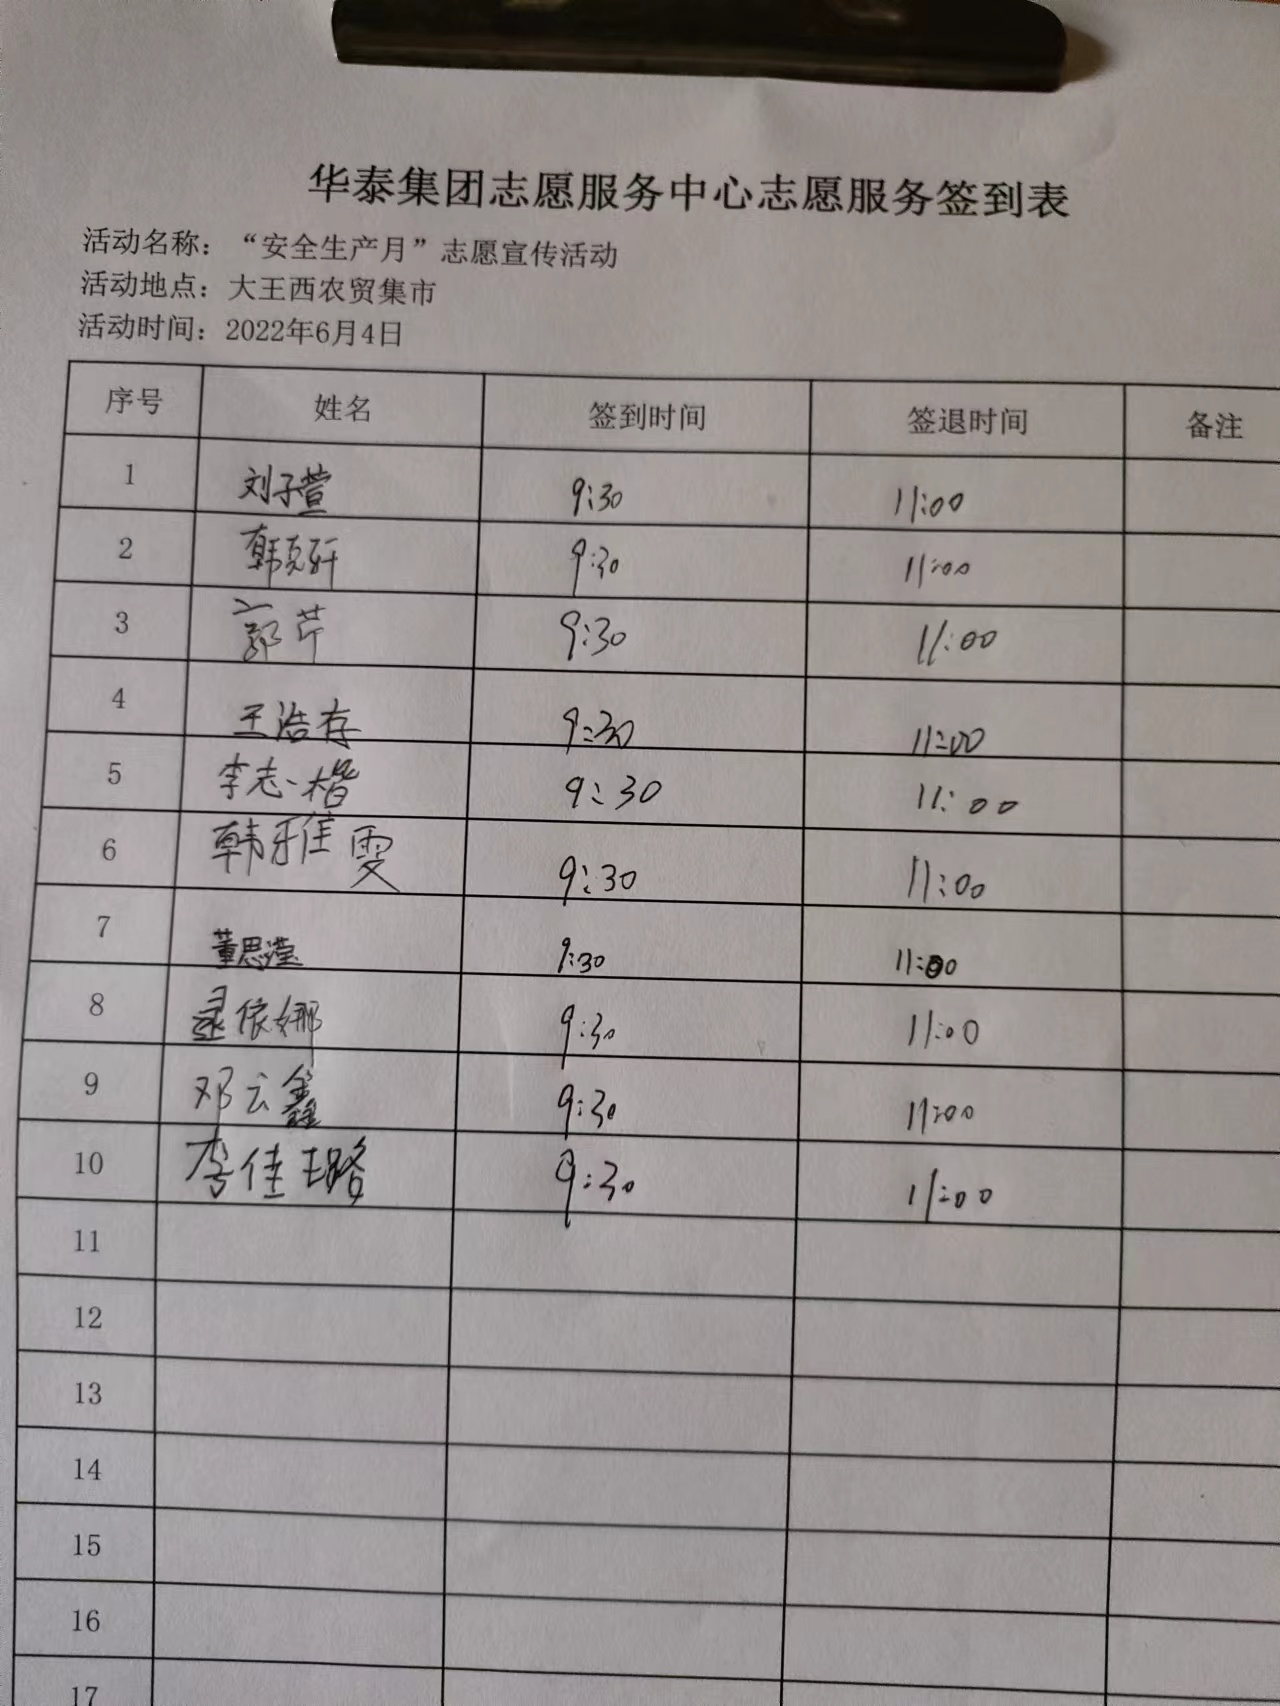 华泰集团志愿服务中心志愿服务签到表
活动名称：“安全生产月”志愿宣传活动
活动地点：大王西农贸集市
活动时间：2022年6月4日
序号 姓名 签到时间 签退时间 备注
1 刘子萱 9:30 11:00
2 韩克轩 9:30 11:00
3 郭芹 9:30 11:00
4 王浩存 9:30 11:00
5 李志楷 9:30 11:00
6 韩雅雯 9:30 11:00
7 董思滢 9:30 11:00
8 依娜 9:30 11:00
9 邓云鑫 9:30 11:00
10 李佳璐 9:30 11:00
11
12
13
14
15
16
17